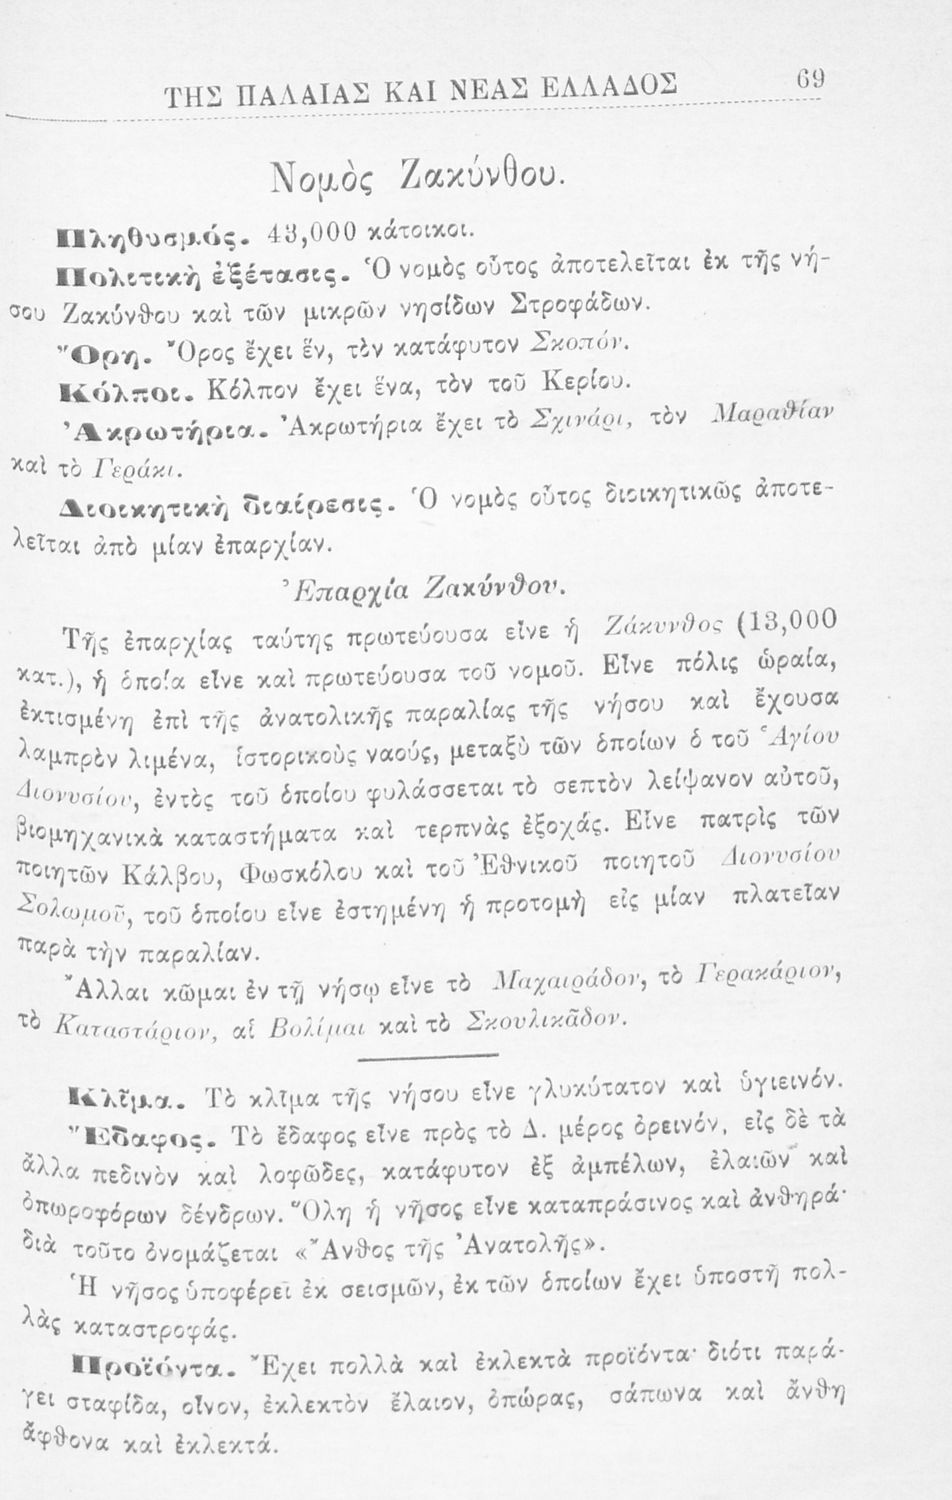 ΤΗΣ ΠΑΛΑΙΑΣ ΚΑΙ ΝΕΑΣ ΕΛΛΑΔΟΣ 69
Νομὸς Ζακύνθου.
Πληθυσμός. 43,000 κάτοικοι.
Πολιτικὴ ἐξέτασις. Ὁ νομὸς οὗτος ἀποτελεῖται ἐκ τῆς νή-
σου Ζακύνθου καὶ τῶν μικρῶν νησίδων Στροφάδων.
Ὄρη. Ὄρος ἔχει ἕν, τὸν κατάφυτον Σκοπόν.
Κόλποι. Κόλπον ἔχει ἕνα, τὸν τοῦ Κερίου.
Ἀκρωτήρια. Ἀκρωτήρια ἔχει τὸ Σχινάρι, τὸν Μαραθίαν
καὶ τὸ Γεράκι.
Διοικητικὴ διαίρεσις. Ὁ νομὸς οὗτος διοικητικῶς ἀποτε-
λεῖται ἀπὸ μίαν ἐπαρχίαν.
Ἐπαρχία Ζακύνθου.
Τῆς ἐπαρχίας ταύτης πρωτεύουσα εἶνε ἡ Ζάκυνθος (13,000
κατ.), ἡ ὁποία εἶνε καὶ πρωτεύουσα τοῦ νομοῦ. Εἶνε πόλις ὡραία,
ἐκτισμένη ἐπὶ τῆς ἀνατολικῆς παραλίας τῆς νήσου καὶ ἔχουσα
λαμπρὸν λιμένα, ἱστορικοὺς ναούς, μεταξὺ τῶν ὁποίων ὁ τοῦ Ἁγίου
Διονυσίου, ἐντὸς τοῦ ὁποίου φυλάσσεται τὸ σεπτὸν λείψανον αὐτοῦ,
βιομηχανικὰ καταστήματα καὶ τερπνὰς ἐξοχάς. Εἶνε πατρὶς τῶν
ποιητῶν Κάλβου, Φωσκόλου καὶ τοῦ Ἐθνικοῦ ποιητοῦ Διονυσίου
Σολωμοῦ, τοῦ ὁποίου εἶνε ἐστημένη ἡ προτομὴ εἰς μίαν πλατεῖαν
παρὰ τὴν παραλίαν.
Ἄλλαι κῶμαι ἐν τῇ νήσῳ εἶνε τὸ Μαχαιράδον, τὸ Γερακάριον,
τὸ Καταστάριον, αἱ Βολίμαι καὶ τὸ Σκουλικᾶδον.
Κλῖμα. Τὸ κλῖμα τῆς νήσου εἶνε γλυκύτατον καὶ ὑγιεινόν.
Ἔδαφος. Τὸ ἔδαφος εἶνε πρὸς τὸ Δ. μέρος ὀρεινόν, εἰς δὲ τὰ
ἄλλα πεδινὸν καὶ λοφῶδες, κατάφυτον ἐξ ἀμπέλων, ἐλαιῶν καὶ
ὀπωροφόρων δένδρων. Ὅλη ἡ νῆσος εἶνε καταπράσινος καὶ ἀνθηρά·
διὰ τοῦτο ὀνομάζεται «Ἄνθος τῆς Ἀνατολῆς».
Ἡ νῆσος ὑποφέρει ἐκ σεισμῶν, ἐκ τῶν ὁποίων ἔχει ὑποστῆ πολ-
λὰς καταστροφάς.
Προϊόντα. Ἔχει πολλὰ καὶ ἐκλεκτὰ προϊόντα· διότι παρά-
γει σταφίδα, οἶνον, ἐκλεκτὸν ἔλαιον, ὀπώρας, σάπωνα καὶ ἄνθη
ἄφθονα καὶ ἐκλεκτά.